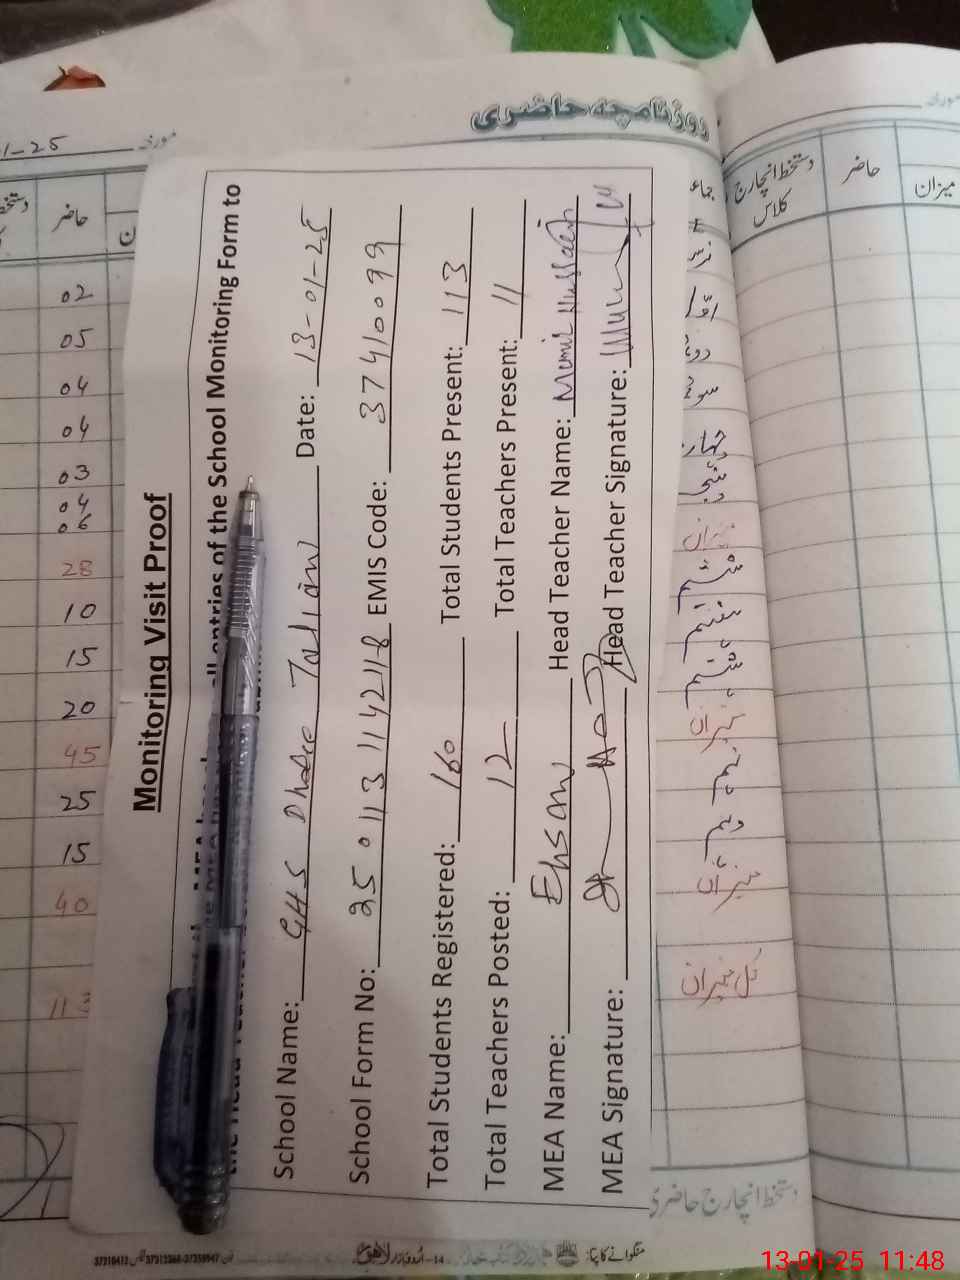 روزنامچہ حاضری
مورخہ
1-25
حاضر
02
05
04
04
03
04
06
28
10
15
20
45
25
15
40
Monitoring Visit Proof
all entries of the School Monitoring Form to
School Name: GHS Dhoke Talian Date: 13-01-25
School Form No: 25 0113 1142118 EMIS Code: 37410099
Total Students Registered: 160 Total Students Present: 113
Total Teachers Posted: 12 Total Teachers Present: 11
MEA Name: Ehsan Head Teacher Name: Munir Hussain
MEA Signature: Head Teacher Signature:
میزان
ششم
ہفتم
ہشتم
میزان
نہم
دہم
میزان
کل میزان
دستخط انچارج حاضری
مورخہ
دستخط انچارج کلاس
حاضر
میزان
منگوانے کا پتہ:
14-اُردو بازار لاہور
13-01-25 11:48